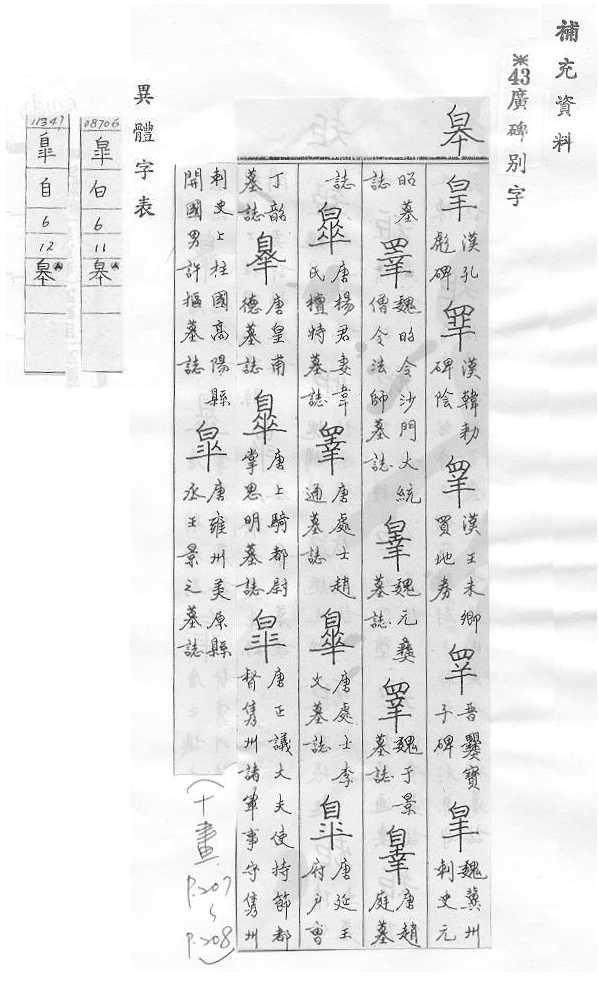 補充資料
※43廣碑別字
皋
漢孔彪碑
漢韓勅碑陰
漢王未卿買地券
吾爨寶子碑
魏冀州刺史元
昭墓誌
魏的令沙門大統僧令法師墓誌
魏元彝墓誌
魏于景墓誌
唐趙庭墓
誌
唐楊君妻韋氏檀特墓誌
唐處士趙通墓誌
唐處士李文墓誌
唐延王府戶曹
丁韶墓誌
唐皇甫德墓誌
唐上騎都尉掌思明墓誌
唐正議大夫使持節都督雋州諸軍事守雋州
刺史上柱國高陽縣開國男許樞墓誌
唐雍州美原縣丞王景之墓誌
(十畫 P.207~P.208)
異體字表
08706
白
6
11
皋
11347
自
6
12
皋